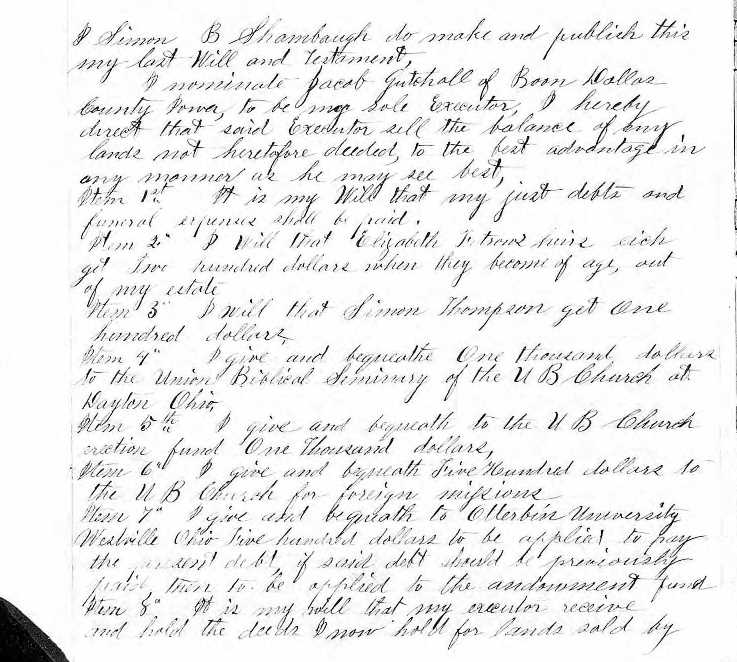 I Simon B Shambaugh do make and publish this
my last Will and Testament,
I nominate Jacob Gutshall of Boon Dallas
County Iowa, to be my sole Executor, I hereby
direct that said Executor sell the balance of my
lands not heretofore deeded, to the best advantage in
any manner as he may see best,
Item 1st It is my Will that my just debts and
funeral expenses shall be paid.
Item 2" I Will that Elizabeth heirs eich
get two hundred dollars when they become of age, out
of my estate
Item 3" I will that Simon Thompson get One
hundred dollars,
Item 4" I give and begueathe One thousand dollars
to the Union Biblical Seminary of the U B Church at
Dayton Ohio,
Item 5th I give and begueath to the U B Church
erection fund One Thousand dollars,
Item 6" I give and begueath Five Hundred dollars to
the U B Church for foreign missions
Item 7" I give and begueath to Otterbin University
Westville Ohio Five hundred dollars to be applied to pay
the present debt, if said debt should be previously
paid then to be applied to the andowment fund
Item 8" It is my will that my executor receive
and hold the deeds I now hold for lands sold by